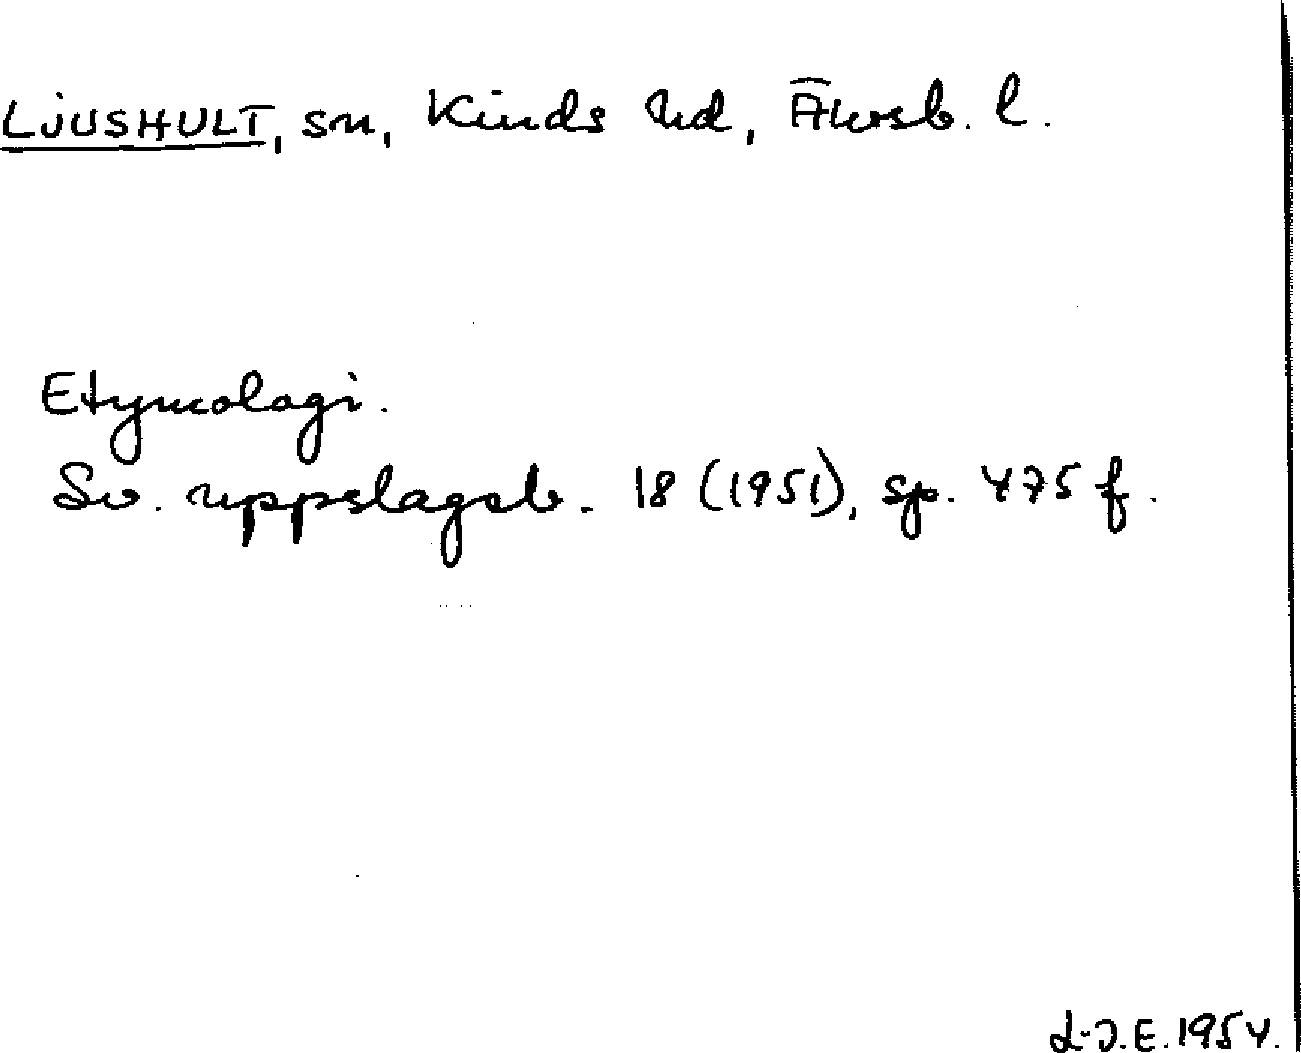 LJUSHULT, sn, Kinds hd, Älvsb. l.
Etymologi.
Sv. uppslagsb. 18 (1951), sp. 475 f.
L-J.E. 1954.